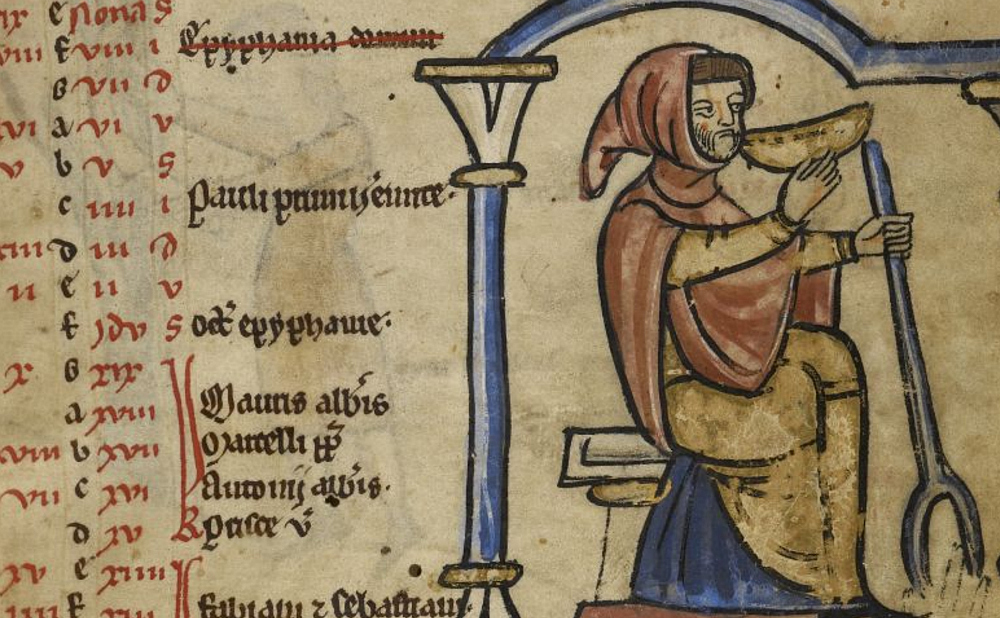 ix e Nonas
viii f viii i Epyphania domini
g vii d
xvi a vi v
v b v s
c iiii i Pauli primi heremite.
xiii d iii d
ii e ii v
f Jdus s oct epyphanie.
x g xix
a xviii Mauri albis
xviii b xvii Marcelli pp
vii c xvi Antonij albis.
d xv Prisce v
xv e xiiii
iiii f xiii Fabiani ⁊ Sebastiani.